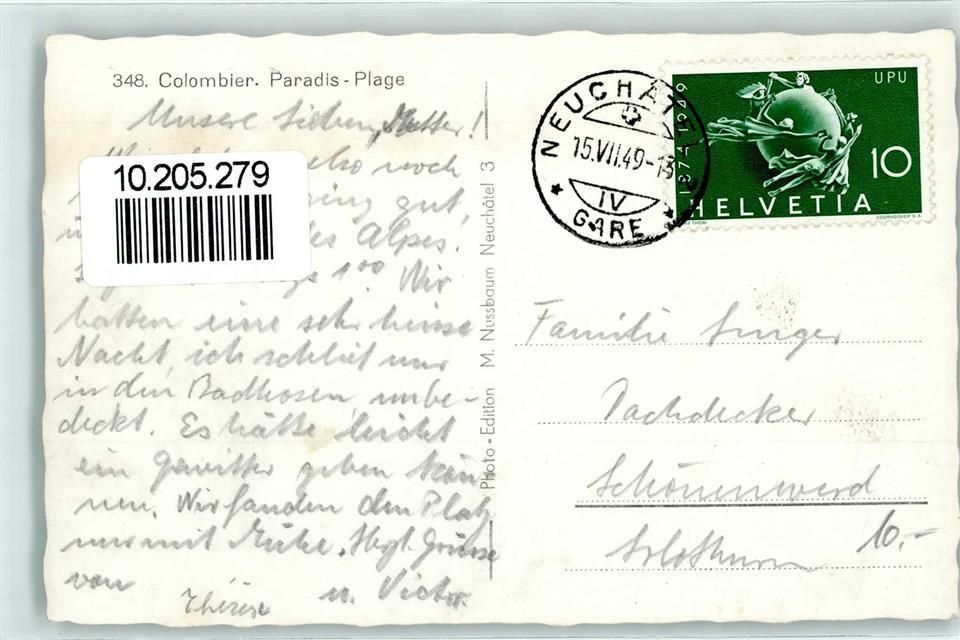 348. Colombier. Paradis-Plage
Unsere Lieben, Mutter!
also noch
gut,
Alpes.
1⁰⁰ Wir
hatten eine sehr heisse
Nacht, ich schlief nur
in den Badhosen, unbe-
deckt. Es hätte leicht
ein Gewitter geben kön-
nen. Wir fanden den Platz
nur mit Mühe. Hzgl. Grüsse
von Thérèse u. Victor.
10.205.279
Photo-Edition M. Nussbaum Neuchâtel 3
NEUCHÂTEL
15.VII.49-13
IV
GARE
1874 1949
UPU
10
HELVETIA
COURVOISIER S.A.
Familie Singer
Dachdecker
Schönenwerd
Solothurn
10.-